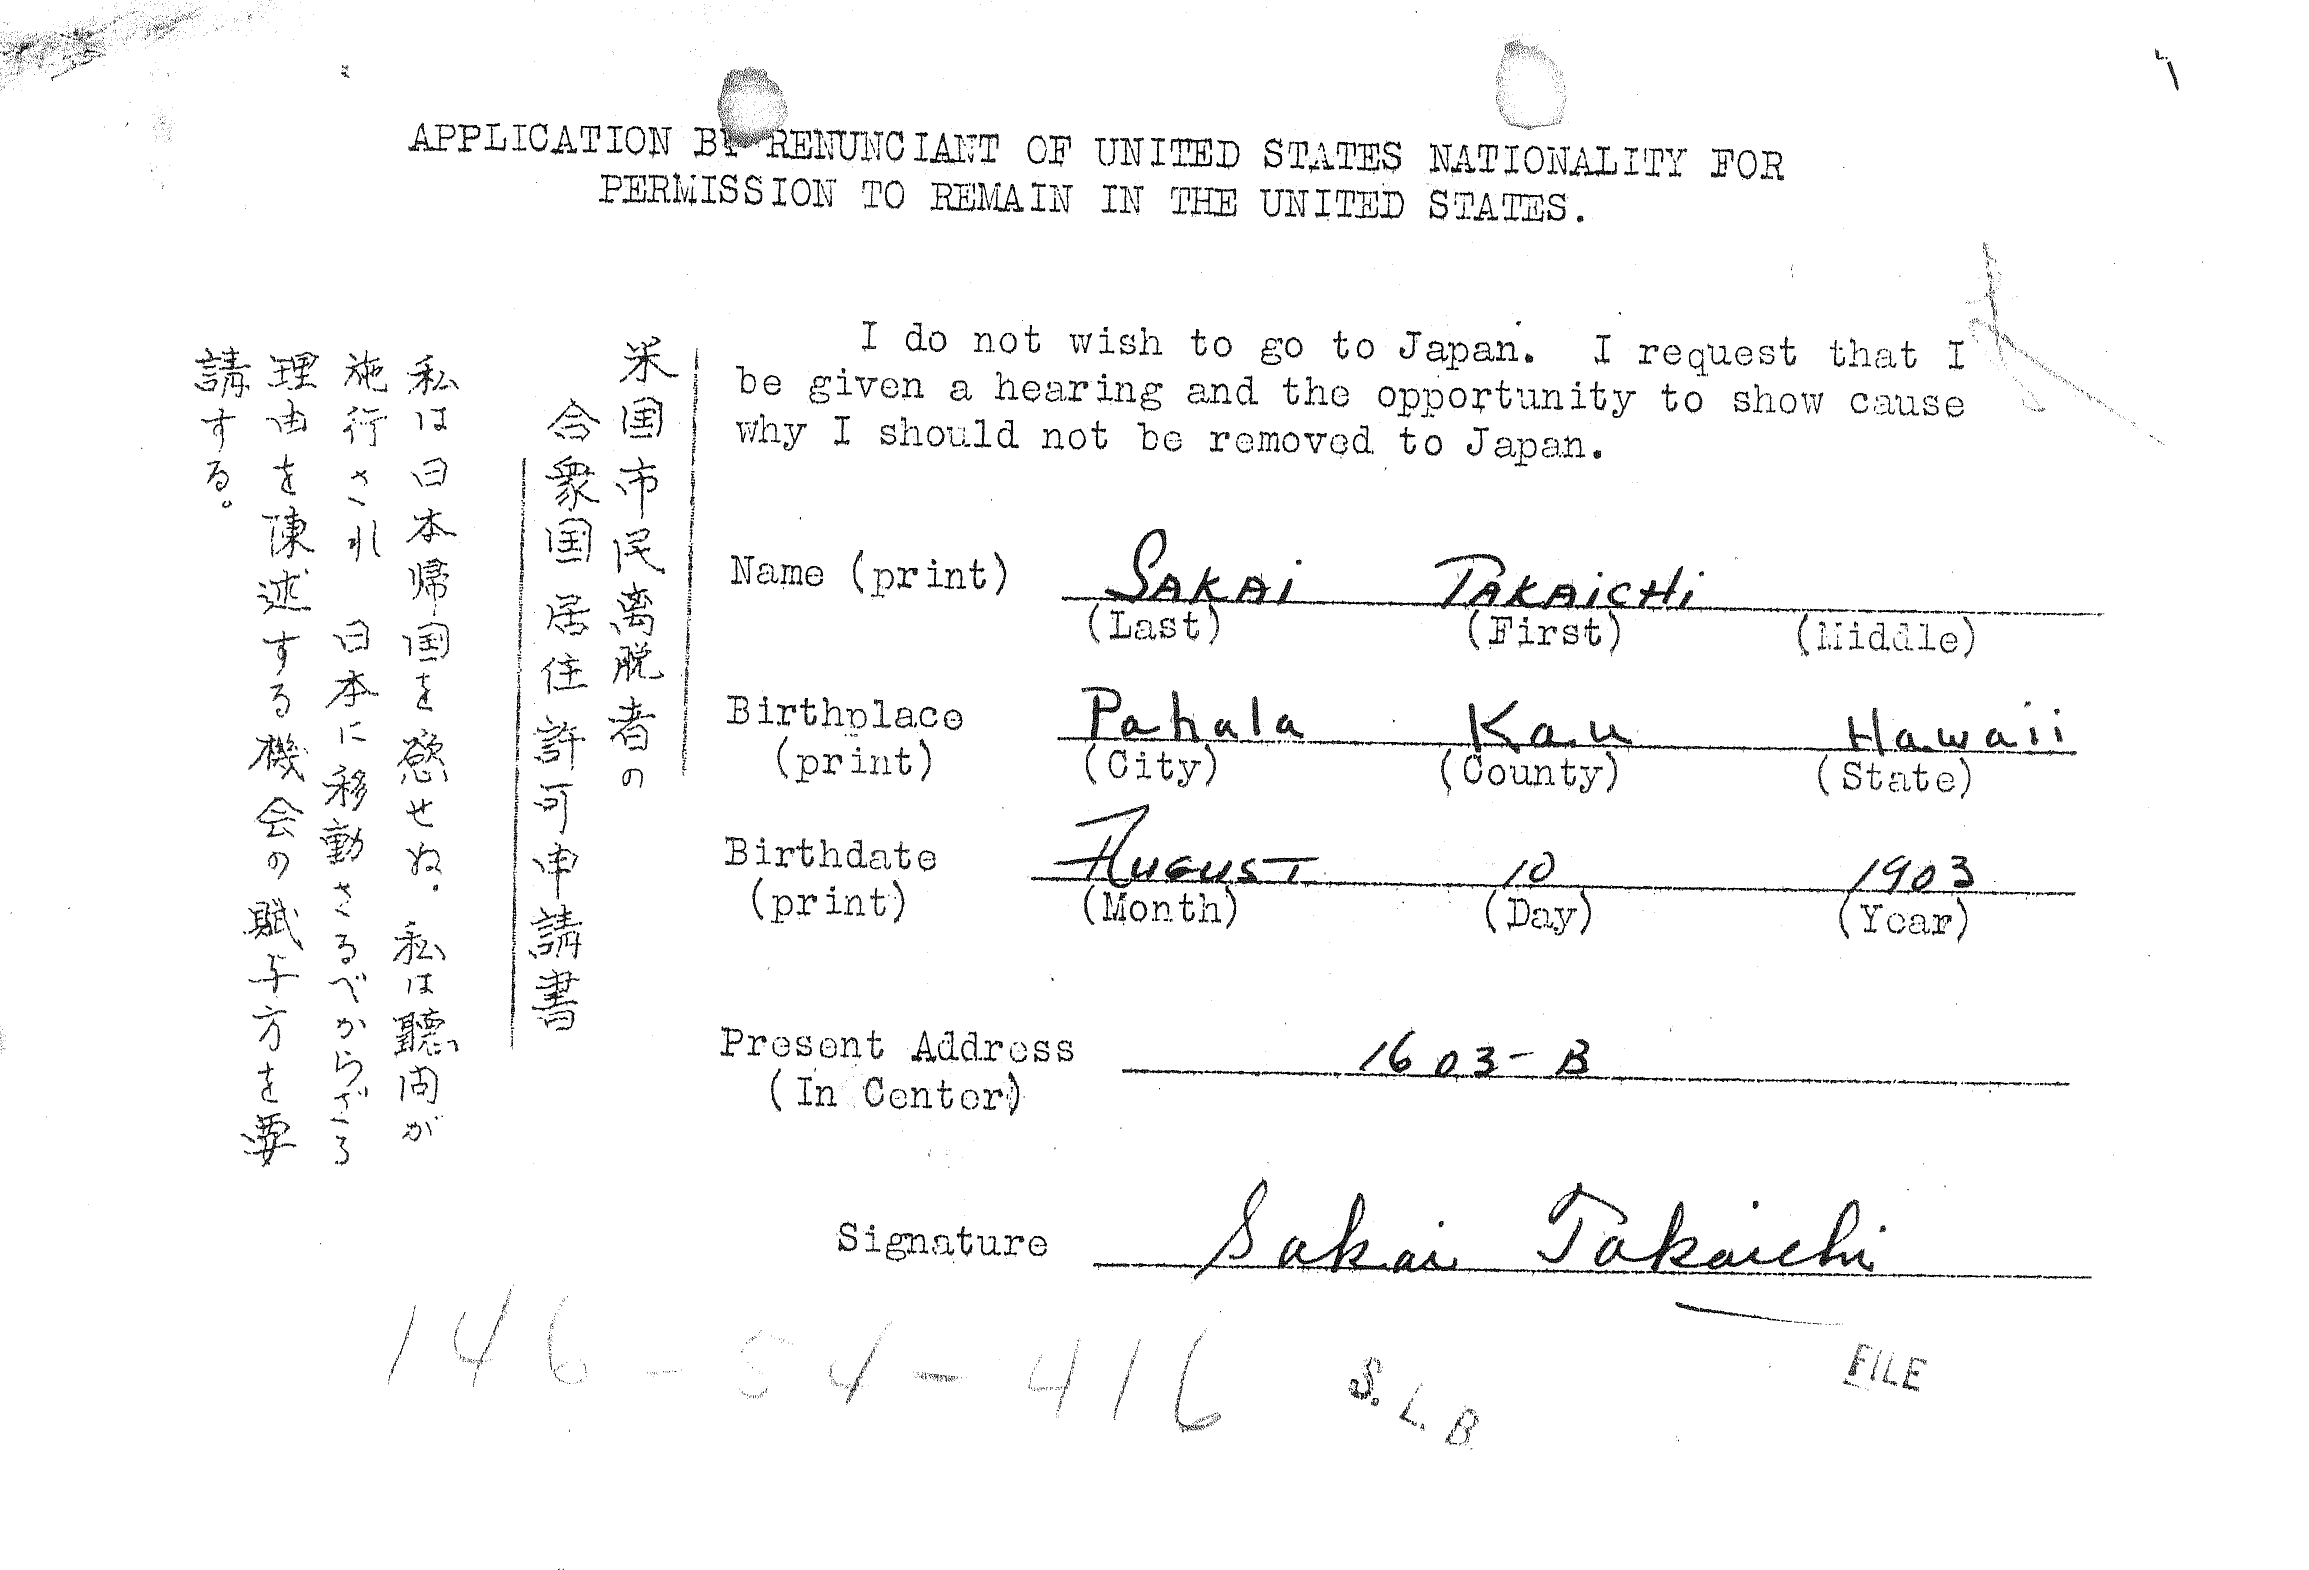 APPLICATION BY RENUNCIANT OF UNITED STATES NATIONALITY FOR
PERMISSION TO REMAIN IN THE UNITED STATES.
I do not wish to go to Japan. I request that I
be given a hearing and the opportunity to show cause
why I should not be removed to Japan.
Name (print) SAKAI TAKAICHI
(Last) (First) (Middle)
Birthplace Pahala Kau Hawaii
(print) (City) (County) (State)
Birthdate AUGUST 10 1903
(print) (Month) (Day) (Year)
Present Address 1603-B
(In Center)
Signature Sakai Takaichi
米国市民离脱者の
合衆国居住許可申請書
私は日本帰国を慾せぬ。私は聽問が
施行され 日本に移動さるべからざる
理由を陳述する機会の賦予方を要
請する。
146-54-416
S. L. B
FILE